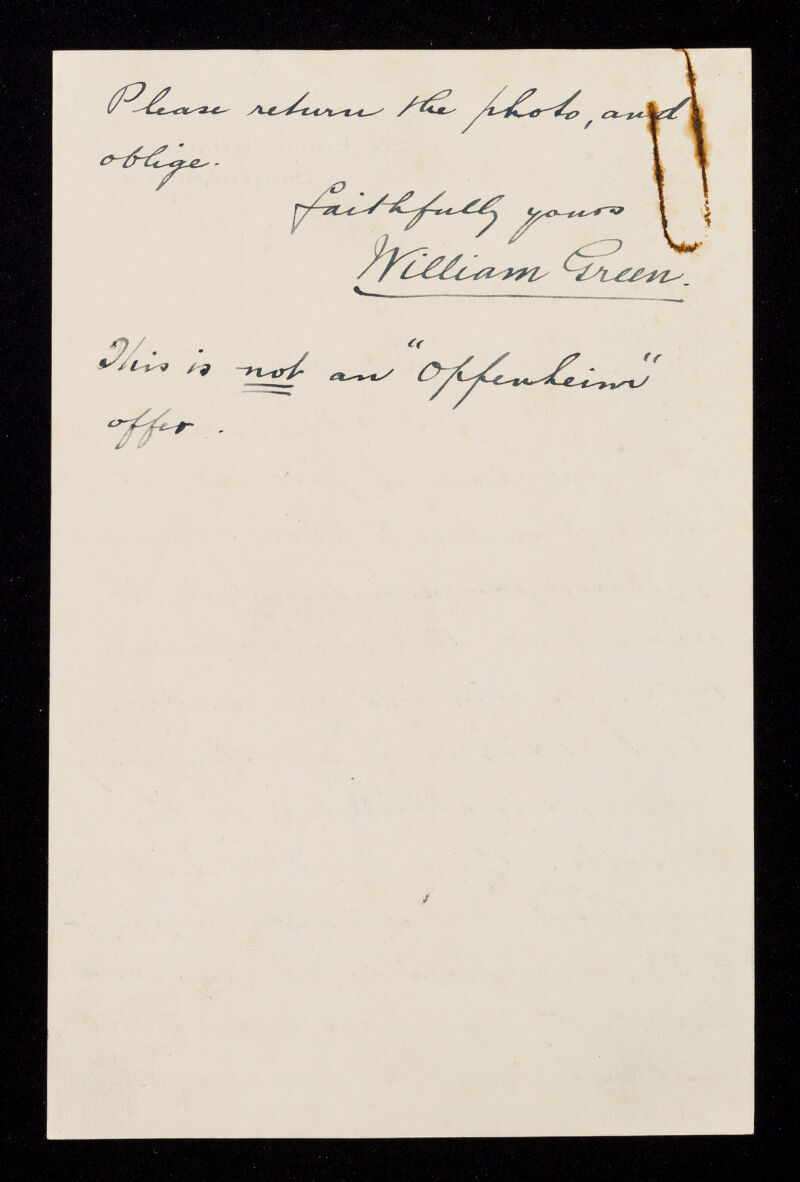 Please return the photo, and
oblige.
Faithfully yours
William Green.
This is not an "Oppenheim"
offer.